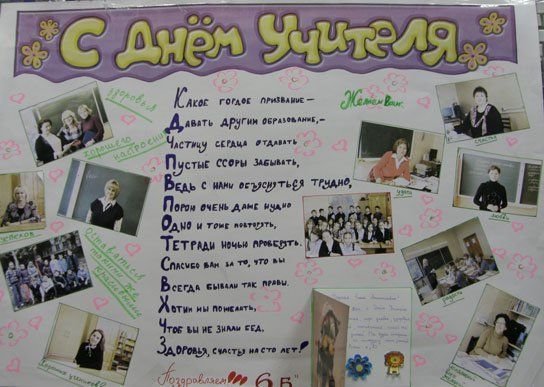 С ДНЁМ УЧИТЕЛЯ
здоровья
хорошего настроения
Желаем Вам:
счастья
удачи
любви
радости
успехов
Оставаться
такими же
красивыми
Какое гордое призвание –
Давать другим образование, –
Частицу сердца отдавать
Пустые ссоры забывать,
Ведь с нами объясниться трудно,
Порой очень даже нудно
Одно и тоже повторять,
Тетради ночью проверять.
Спасибо вам за то, что вы
Всегда бывали так правы.
Хотим мы пожелать,
Чтоб вы не знали бед,
Здоровья, счастья на сто лет!
Поздравляем!!! 6 Б"